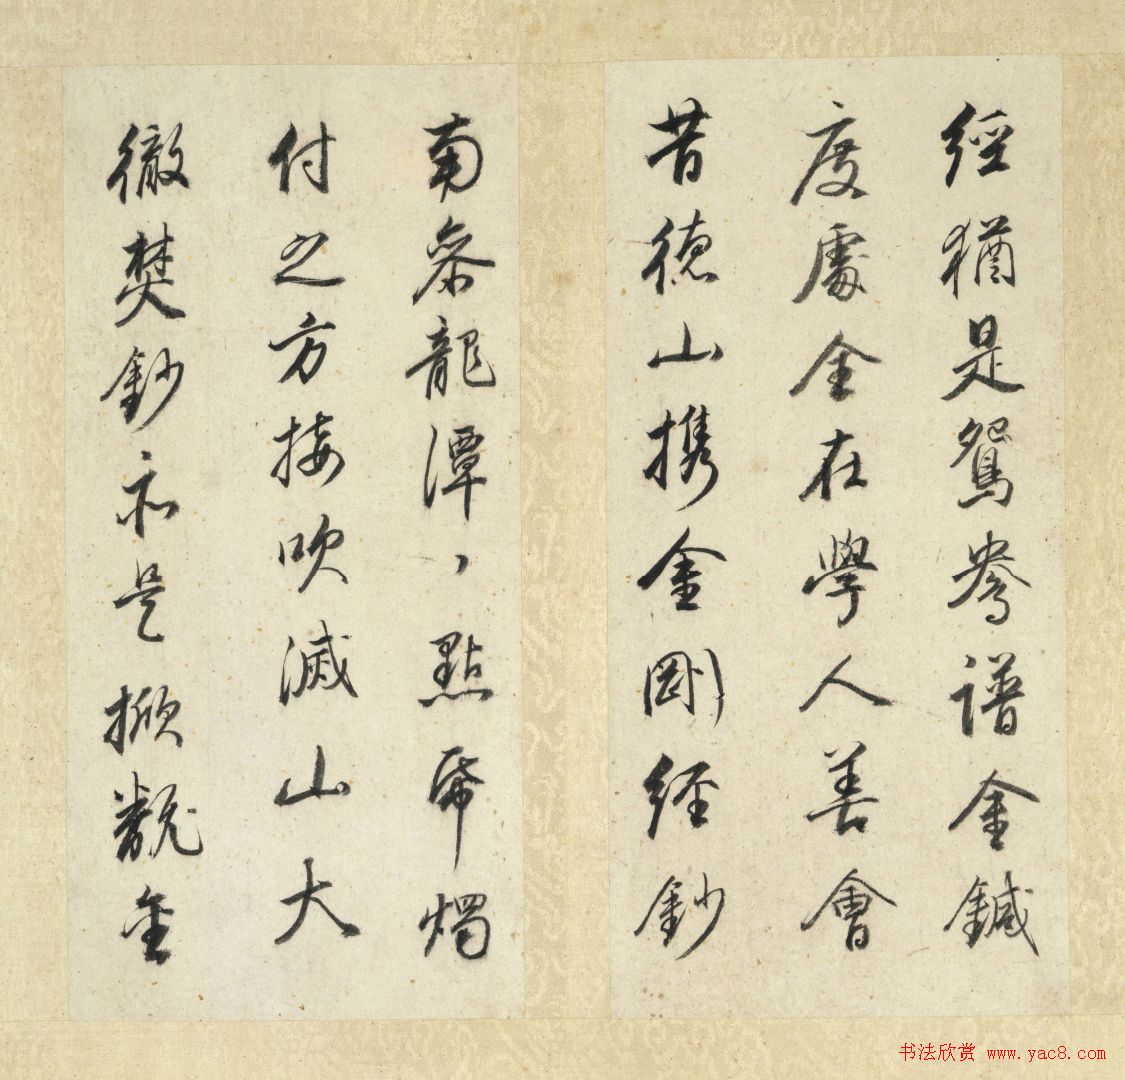 經猶是鴛鴦譜金鍼
度處全在學人善會
昔德山携金剛經鈔
南參龍潭、點紙燭
付之方接吹滅山大
徹焚鈔亦是掀翻金
书法欣赏 www.yac8.com